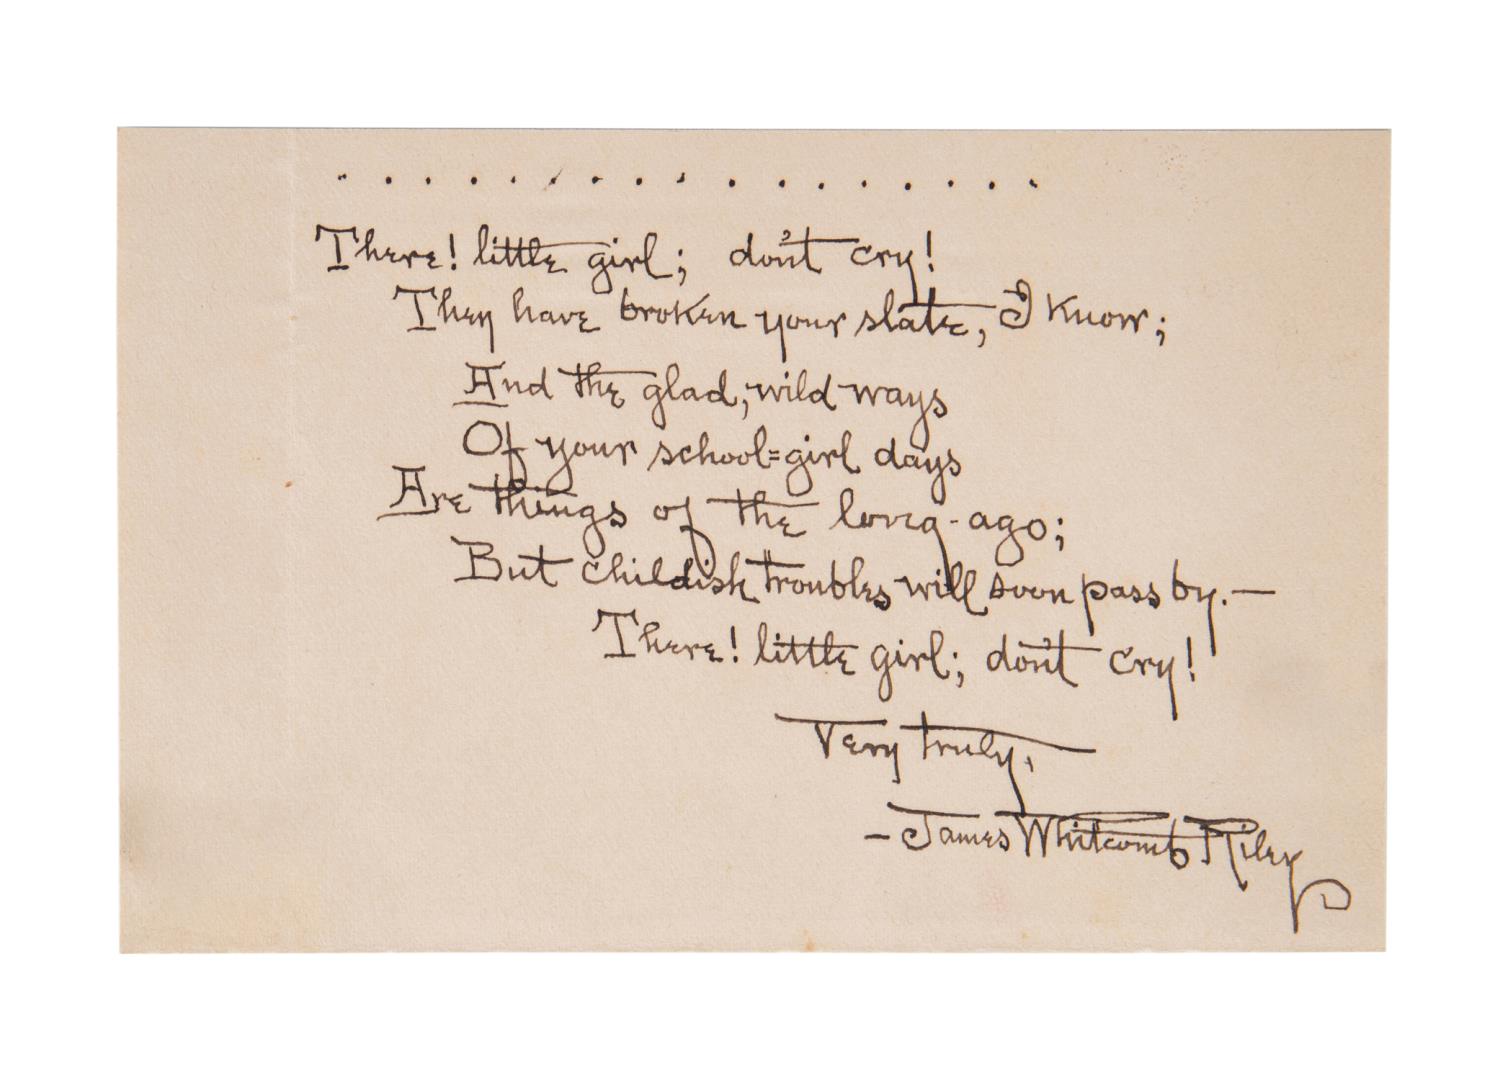 . . . . . . . . . . . . . . . . .
There! little girl; don't cry!
They have broken your slate, I know;
And the glad, wild ways
Of your school=girl days
Are things of the long-ago;
But childish troubles will soon pass by.—
There! little girl; don't cry!
Very truly,
— James Whitcomb Riley